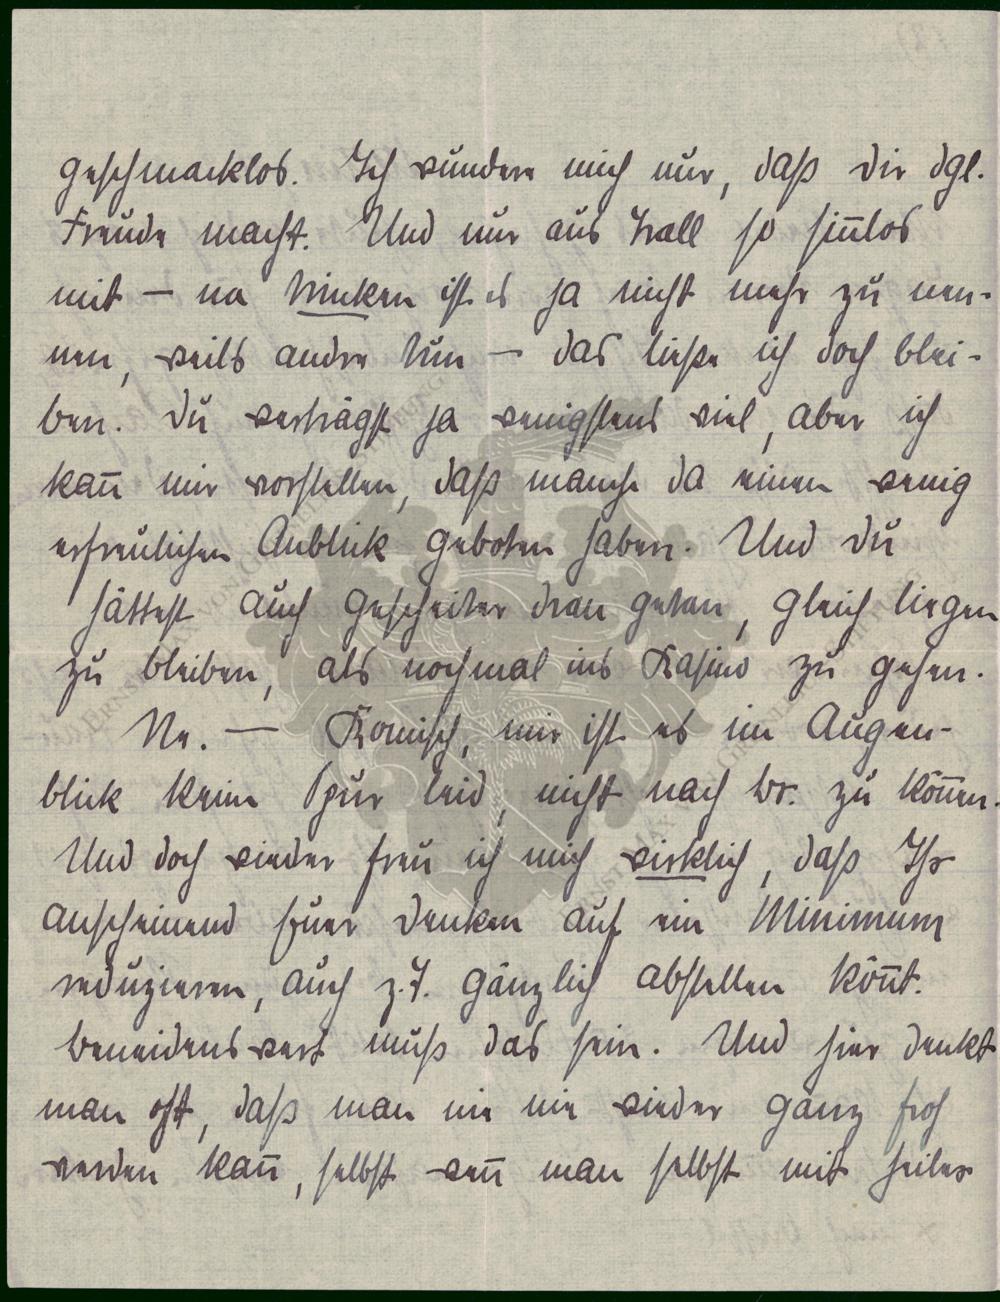 geschmacklos. Ich wundere mich nur, daß dir dgl.
Freude macht. Und nur aus Drall so sinn̄los
mit – na trinken ist es ja nicht mehr zu nen-
nen, weils andre tun – das ließe ich doch blei-
ben. Du verträgst ja wenigstens viel, aber ich
kan̄ mir vorstellen, daß manche da einen wenig
erfreulichen Anblick geboten haben. Und du
hättest auch gescheiter dran getan, gleich liegen
zu bleiben, als nochmal ins Kasino zu gehen.
Na. – Komisch, mir ist es im Augen-
blick keine Spur leid, nicht nach Br. zu kön̄en.
Und doch wieder freu ich mich wirklich, daß Ihr
anscheinend Euer Denken auf ein Minimum
reduzieren, auch z.T. gänzlich abstellen kön̄t.
Beneidenswert muß das sein. Und hier denkt
man oft, daß man nie nie wieder ganz froh
werden kan̄, selbst wen̄ man selbst mit heiler
ERNST MAX VON GRUNELIUS STIFTUNG